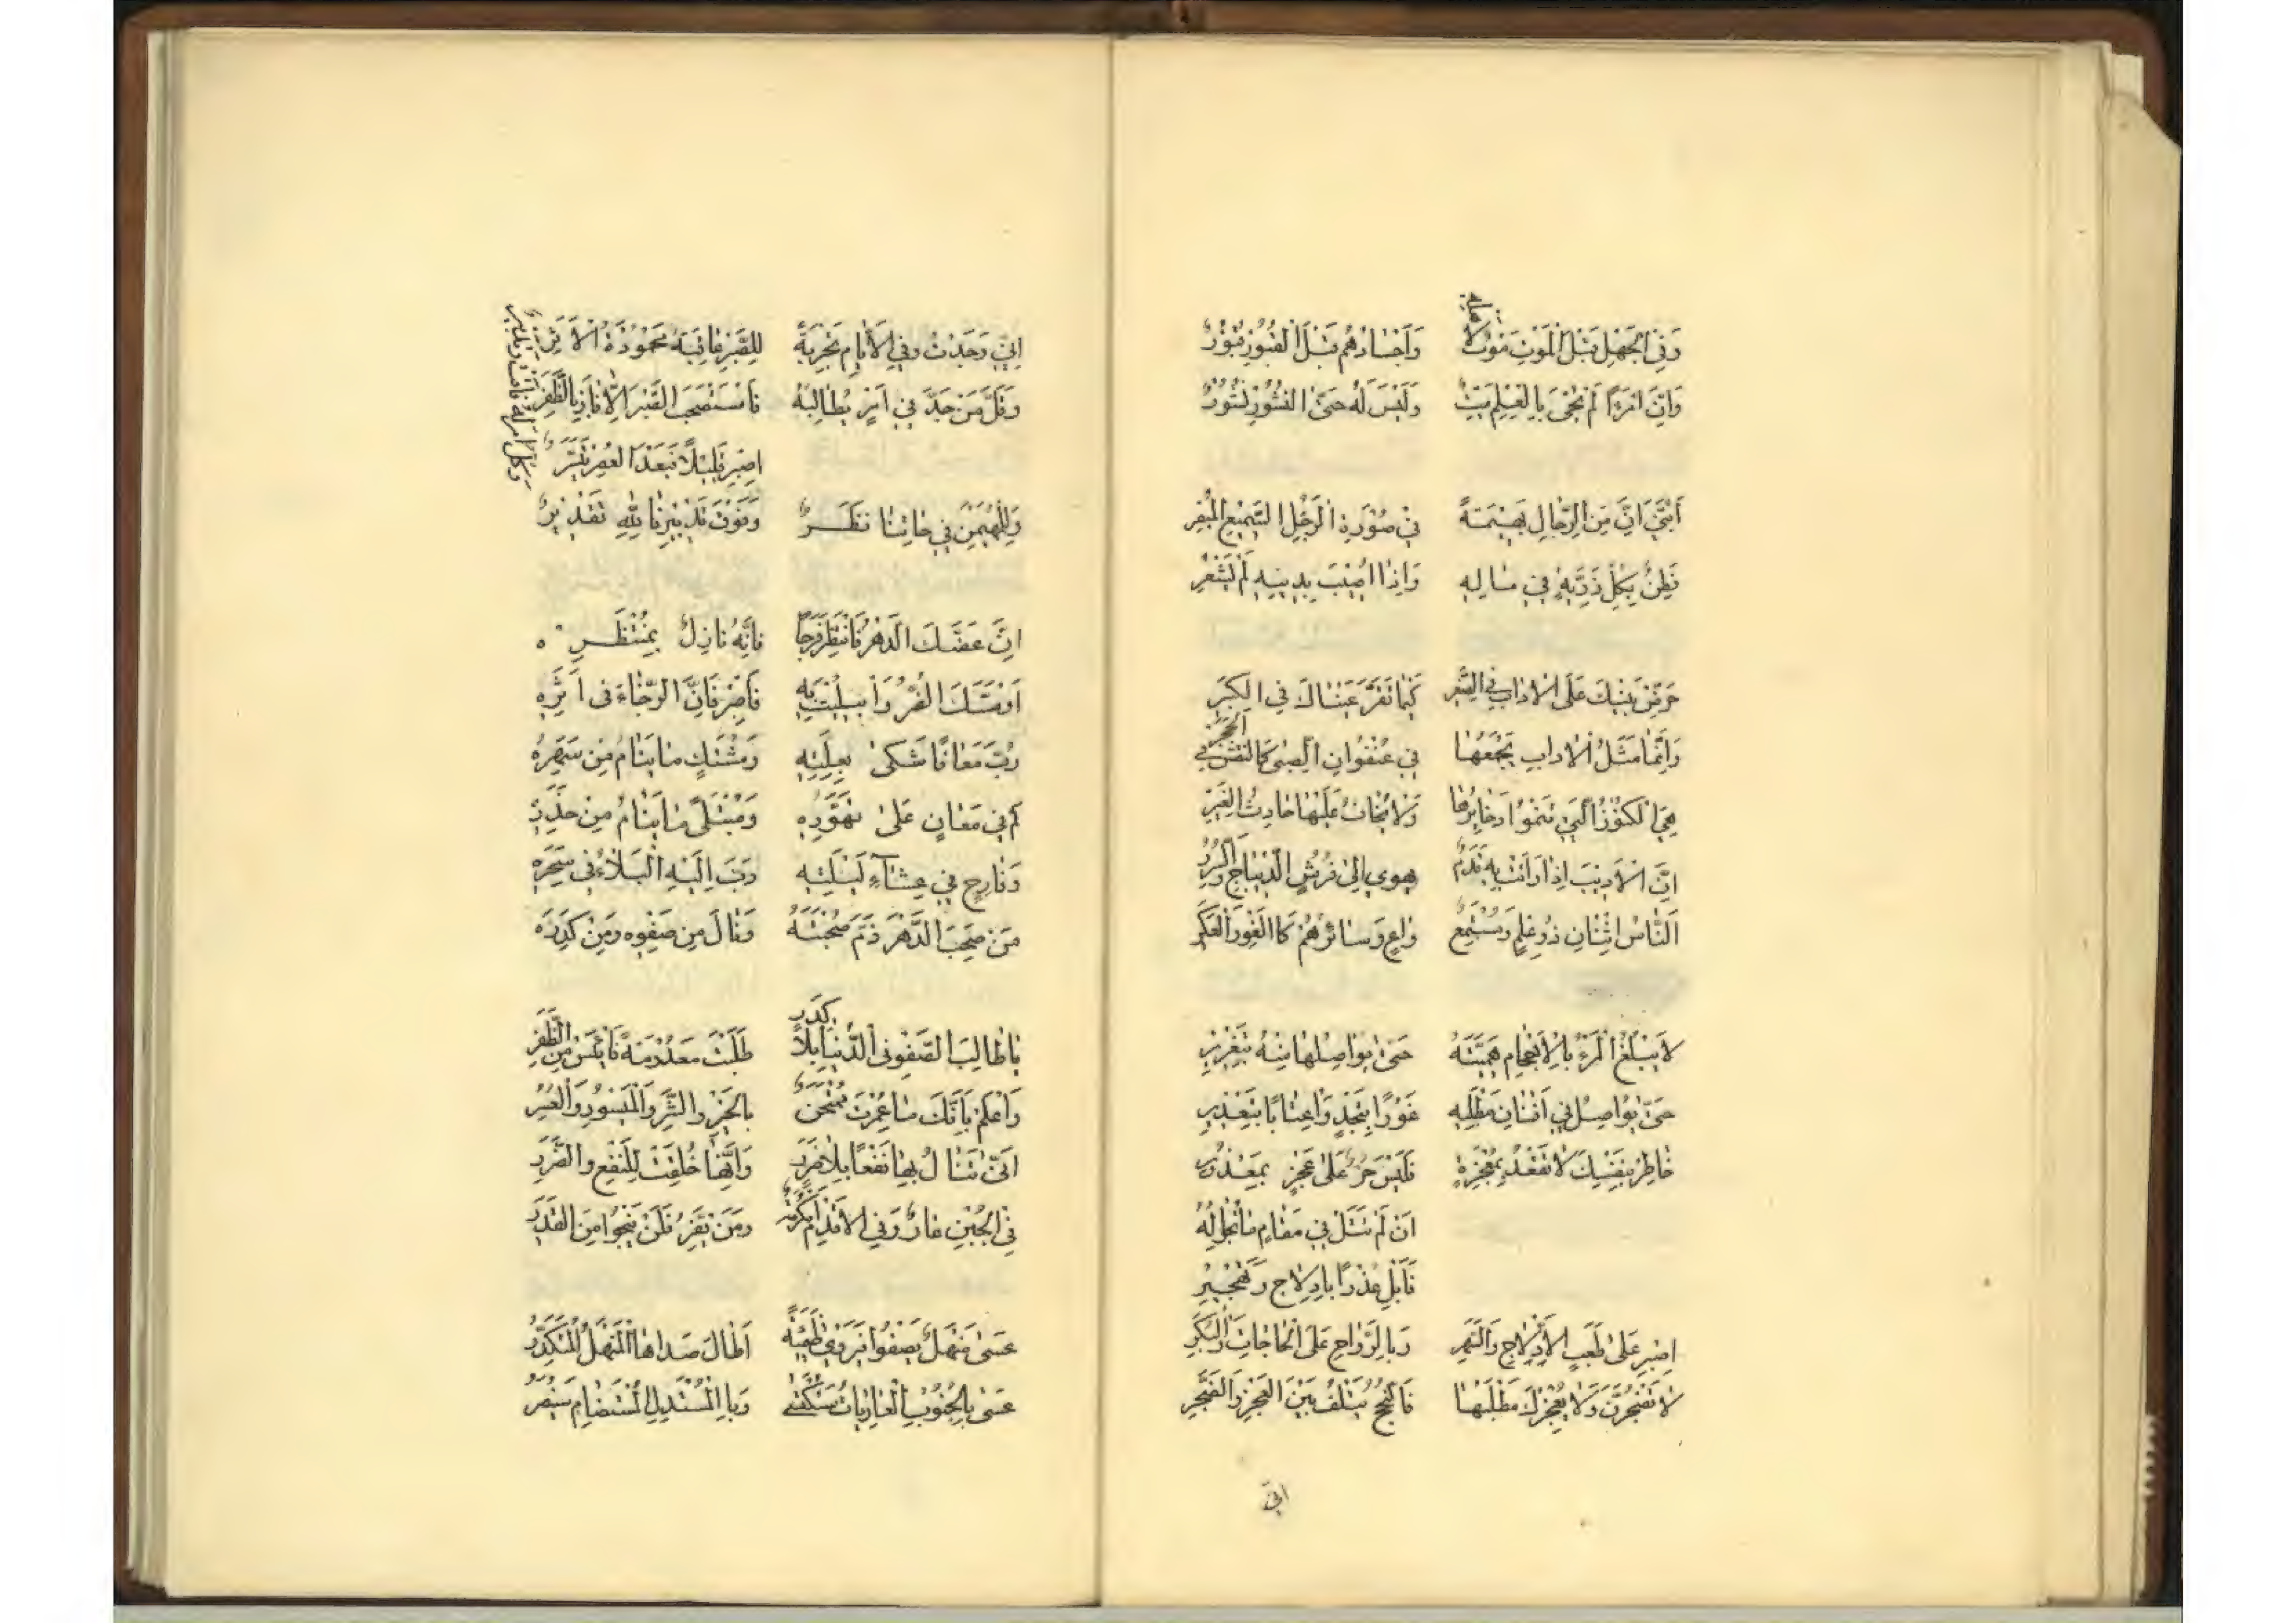 وَفِي الْجَهْلِ قَبْلَ الْمَوْتِ مَوْتٌ لِأَهْلِهِ وَاَجْسَادُهُمْ قَبْلَ الْقُبُورِ قُبُورٌ
وَاِنَّ امْرَءًا لَمْ يُحْيَ بِالْعِلْمِ مَيِّتٌ وَلَيْسَ لَهُ حَتَّى النُّشُورِ نُشُورٌ
اَبُنَيَّ اِنَّ مِنَ الرِّجَالِ بَهِيمَةً فِي صُورَةِ الرَّجُلِ السَّمِيعِ الْمُبْصِرِ
فَطِنٌ بِكُلِّ رَزِيَّةٍ فِي مَالِهِ وَاِذَا اُصِيبَ بِدِينِهِ لَمْ يَشْعُرِ
حَرِّضْ بَنِيكَ عَلَى الْاٰدَابِ فِي الصِّغَرِ كَيْمَا تَقَرَّ عَيْنَاكَ فِي الْكِبَرِ
وَاِنَّمَا مَثَلُ الْاٰدَابِ تَجْمَعُهَا فِي عُنْفُوَانِ الصِّبٰى كَالنَّقْشِ فِي الْحَجَرِ
هِيَ الْكُنُوزُ الَّتِي تَنْمُوا ذَخَايِرُهَا وَلَا يُخَافُ عَلَيْهَا حَادِثُ الْغِيَرِ
اِنَّ الْاَدِيبَ اِذَا زَلَّتْ بِهِ قَدَمٌ يهوي اِلٰى فُرُشِ الدِّيبَاجِ وَالسُّرُرِ
اَلنَّاسُ اثْنَانِ ذُو عِلْمٍ وَمُسْتَمِعٌ وَاعٍ وَسَائِرُهُمْ كَاللَّغْوِ وَالْعَكَرِ
لَا يَبْلُغُ الْمَرْءُ بِالْاَحْجَامِ هِمَّتَهُ حَتّٰى يُوَاصِلَهَا مِنْهُ بِتَغْرِيرِ
حَتّٰى يُوَاصِلَ فِي اَفْنَانِ مَطْلَبِهِ غَوْرًا بِنَجْدٍ وَاِعْتَابًا بِتَعْذِيرِ
خَاطِرْ بِنَفْسِكَ لَا تَقْعُدْ بِمُعْجِزَةٍ فَلَيْسَ حُرٌّ عَلٰى عَجْزٍ بِمَعْذُورِ
اِنْ لَمْ تَنَلْ فِي مَقَامٍ مَا تُحَاوِلُهُ
فَاَبْلِ عُذْرًا بِاِدْلَاجٍ وَتَهْجِيرِ
اِصْبِرْ عَلٰى تَعَبِ الْاِدْلَاجِ وَالسَّهَرِ وَبِالرَّوَاحِ عَلَى الْحَاجَاتِ وَالْبُكَرِ
لَا تَضْجُرَنَّ وَلَا يُعْجِزْكَ مَطْلَبُهَا فَالنُّجْحُ يَتْلَفُ بَيْنَ الْعَجْزِ وَالضَّجَرِ
اِنّي
اِنِّي وَجَدْتُ وَفِي الْاَيَّامِ تَجْرِبَةً لِلصَّبْرِ عَاقِبَةً مَحْمُودَةَ الْاَثَرِ
وَقَلَّ مَنْ جَدَّ فِي اَمْرٍ يُطَالِبُهُ فَاسْتَصْحَبَ الصَّبْرَ اِلَّا فَازَ بِالظَّفَرِ
اِصْبِرْ قَلِيلًا فَبَعْدَ الْعُسْرِ تَيْسِيرٌ
وَكُلُّ اَمْرٍ لَهُ وَقْتٌ وَتَدْبِيرٌ
وَلِلْمُهَيْمِنِ فِي حَالِنَا نَظَرٌ وَفَوْقَ تَدْبِيرِنَا لِلّٰهِ تَقْدِيرٌ
اِنْ عَضَّكَ الدَّهْرُ فَانْتَظِرْ فَرَجًا فَاِنَّهُ نَازِلٌ بِمُنْتَظَرِهِ
اَوْ مَسَّكَ الضُّرُّ وَابْتُلِيتَ بِهِ فَاصْبِرْ فَاِنَّ الرَّخَاءَ فِي اَثَرِهِ
رُبَّ مُعَافًا شَكٰى بِعِلَّتِهِ وَمُشْتَكٍ مَا يَنَامُ مِنْ سَهَرِهِ
كَمْ مِنْ مُعَانٍ عَلٰى تَهَوُّرِهِ وَمُبْتَلًى مَا يَنَامُ مِنْ حَذَرِهِ
وَفَارِحٍ فِي عِشَاءِ لَيْلَتِهِ دَبَّ اِلَيْهِ الْبَلَاءُ فِي سَحَرِهِ
مَنْ صَحِبَ الدَّهْرَ ذَمَّ صُحْبَتَهُ وَنَالَ مِنْ صَفْوِهِ وَمِنْ كَدَرِهِ
يَا طَالِبَ الصَّفْوِ فِي الدُّنْيَا بِلَا كَدَرٍ طَلَبْتَ مَعْدُومَةً فَايْئَسْ مِنَ الظَّفَرِ
وَاعْلَمْ بِاَنَّكَ مَا عُمِّرْتَ مُمْتَحَنٌ بِالْخَيْرِ وَالشَّرِّ وَالْمَيْسُورِ وَالْعُسُرِ
اَنّٰى تَنَالُ بِهَا نَفْعًا بِلَا ضَرَرٍ وَاِنَّهَا خُلِقَتْ لِلنَّفْعِ وَالضَّرَرِ
فِي الْجُبْنِ عَارٌ وَفِي الْاِقْدَامِ مَكْرُمَةٌ وَمَنْ يَفِرُّ فَلَنْ يَنْجُوا مِنَ الْقَدَرِ
عَسٰى مَنْهَلٌ يَصْفُوا فَيَرْوِي ظَمِيَّةً اَطَالَ صَدَاهَا الْمَنْهَلُ الْمُتَكَدِّرُ
عَسٰى بِالْجُنُوبِ الْعَارِيَاتِ سَتُكْتَسٰى وَبِالْمُسْتَذِلِّ الْمُسْتَضَامِ سَيُنْصَرُ